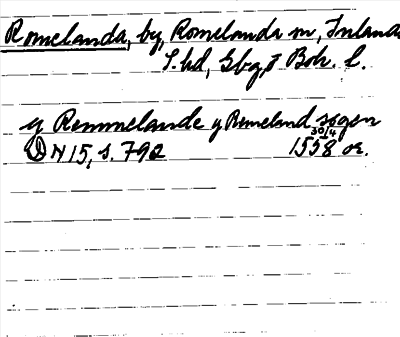 Romelanda, by, Romelanda sn, Inlands
T. hd, Gbg o Boh. l.
y Rommelande y Rmeland sogen
DN 15, s. 792 1558 30/4 or.